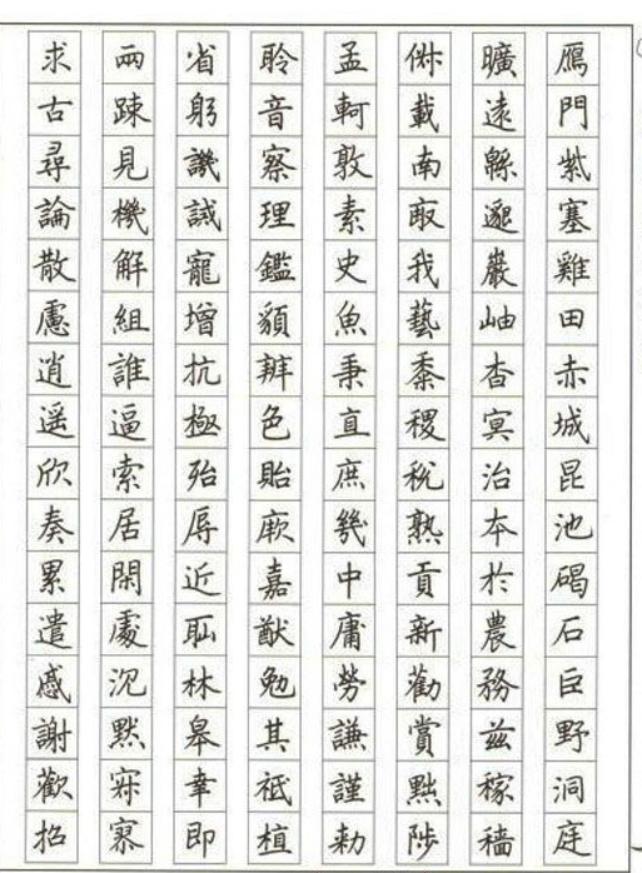 鴈門紫塞雞田赤城昆池碣石巨野洞庭
曠遠緜邈巖岫杳冥治本於農務兹稼穡
俶載南畝我藝黍稷稅熟貢新勸賞黜陟
孟軻敦素史魚秉直庶幾中庸勞謙謹勅
聆音察理鑑䫉辨色貽厥嘉猷勉其祗植
省躬譏誡寵增抗極殆辱近耻林皋幸即
兩疎見機解組誰逼索居閑處沉默寂寥
求古尋論散慮逍遥欣奏累遣慼謝歡招